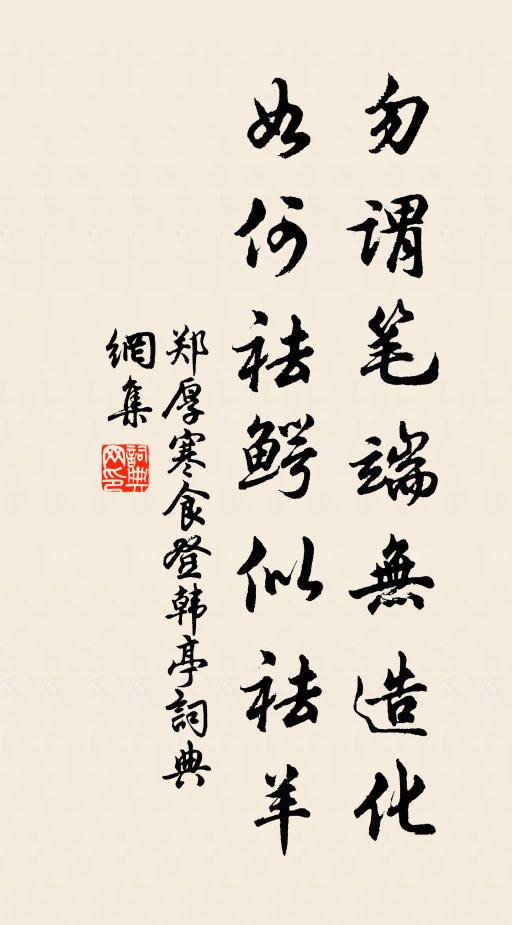 勿谓笔端無造化
如何祛鳄似祛羊
郑厚寒食登韩亭詞典
網集
詞典网印